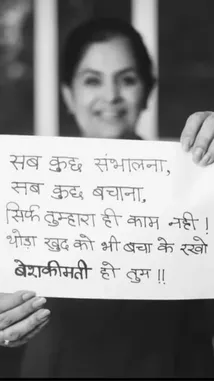 सब कुछ संभालना,
सब कुछ बचाना,
सिर्फ तुम्हारा ही काम नही !
थोड़ा खुद को भी बचा के रखो
बेशकीमती हो तुम !!